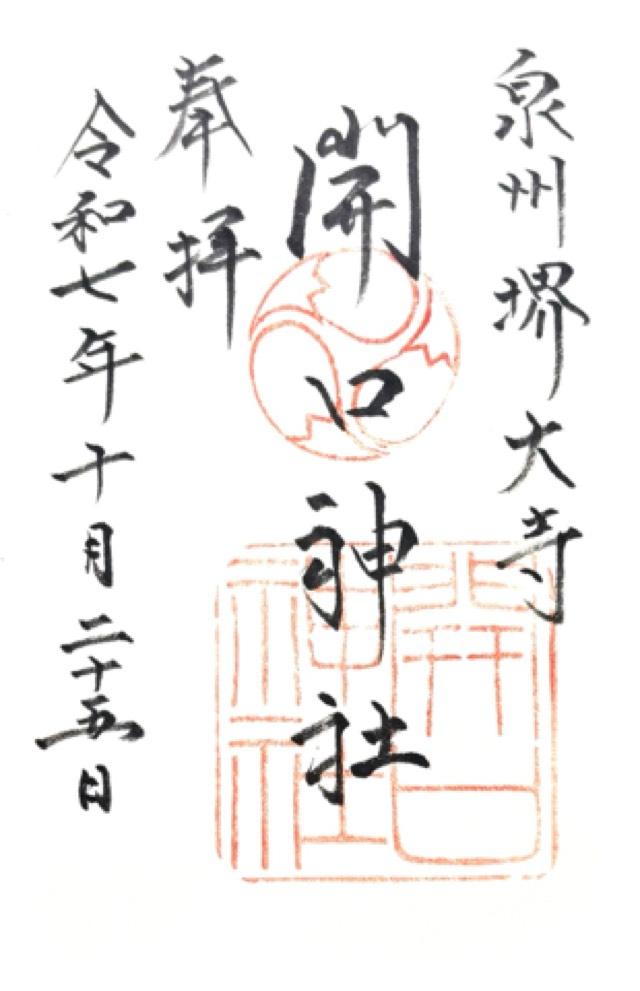 泉州堺大寺
開口神社
奉拝
令和七年十月二十五日
開口
神社